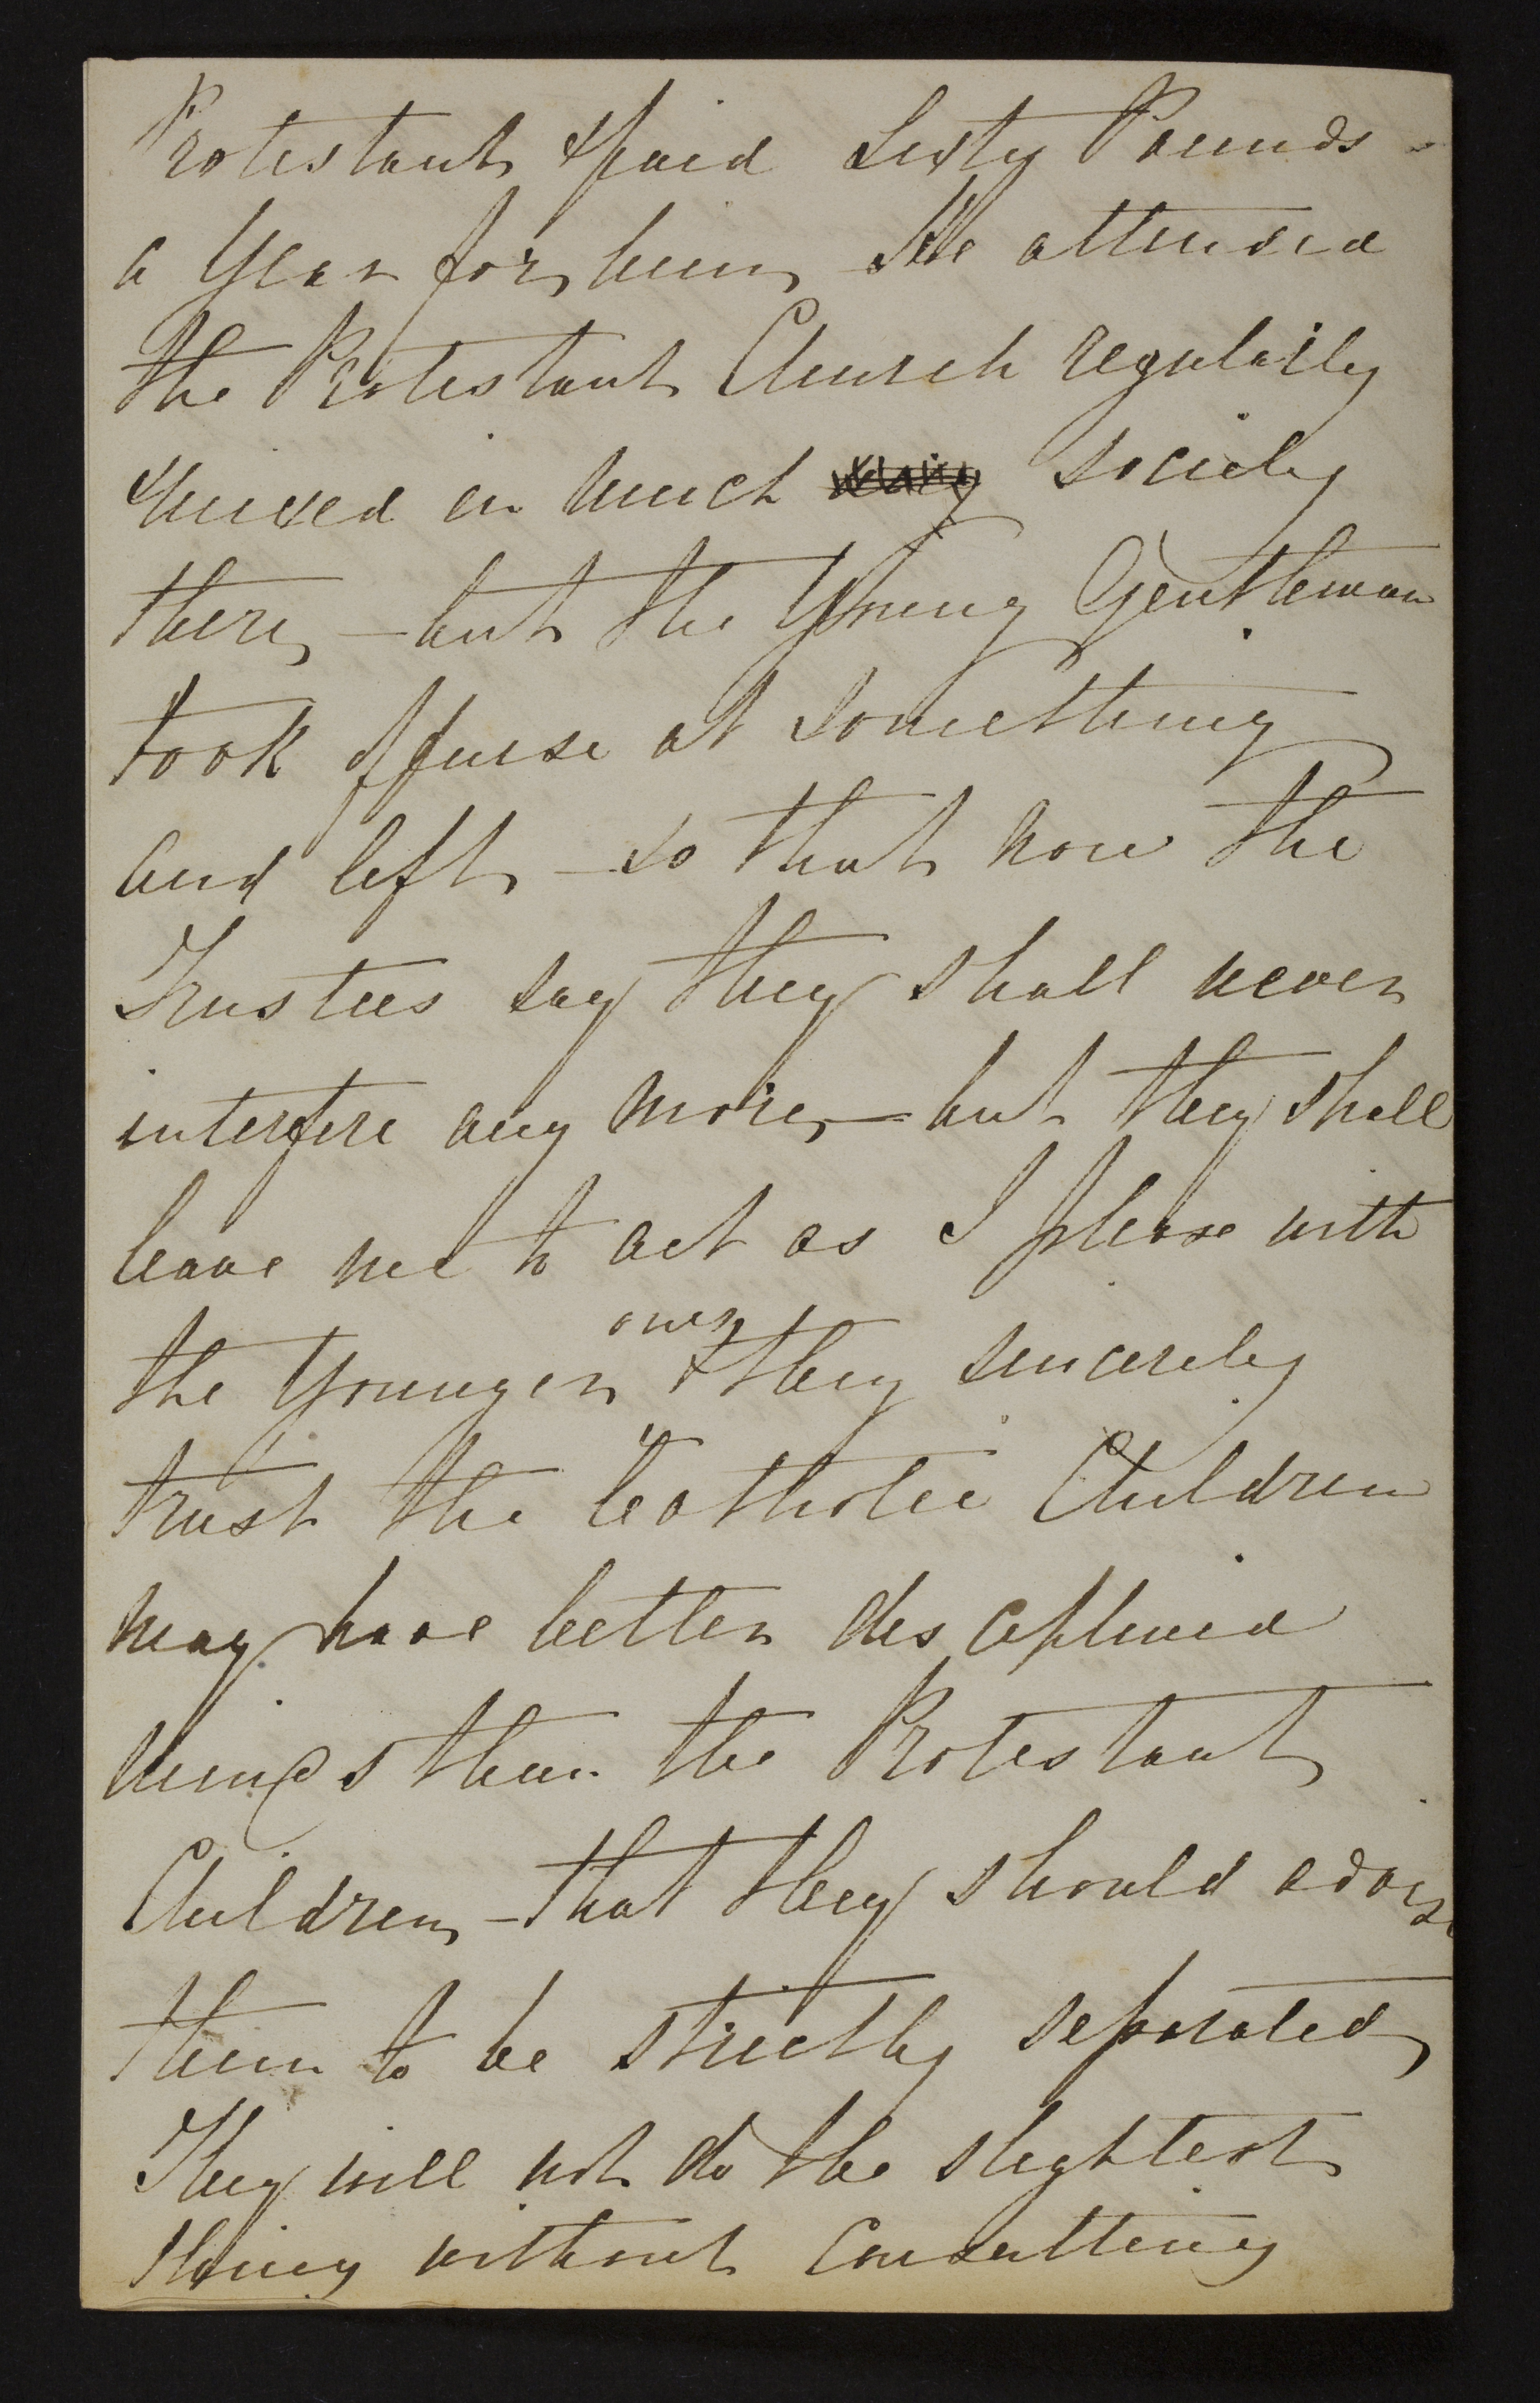 Protestant & paid Sixty Pounds -
a Year for him He attended
the Protestant Church regularly
& mixed in much society
there, - but the Young Gentleman
took offense at something
and left - so that now the
Trustees say they shall never
interfere any more, - but they shall
leave me to act as I please with
ones
the Younger & they sincerely
trust the Catholic Children
may have better disciplined
minds than the Protestant
Children, - that they should advise
them to be strictly separated,
They will not do the slightest
thing without Consulting